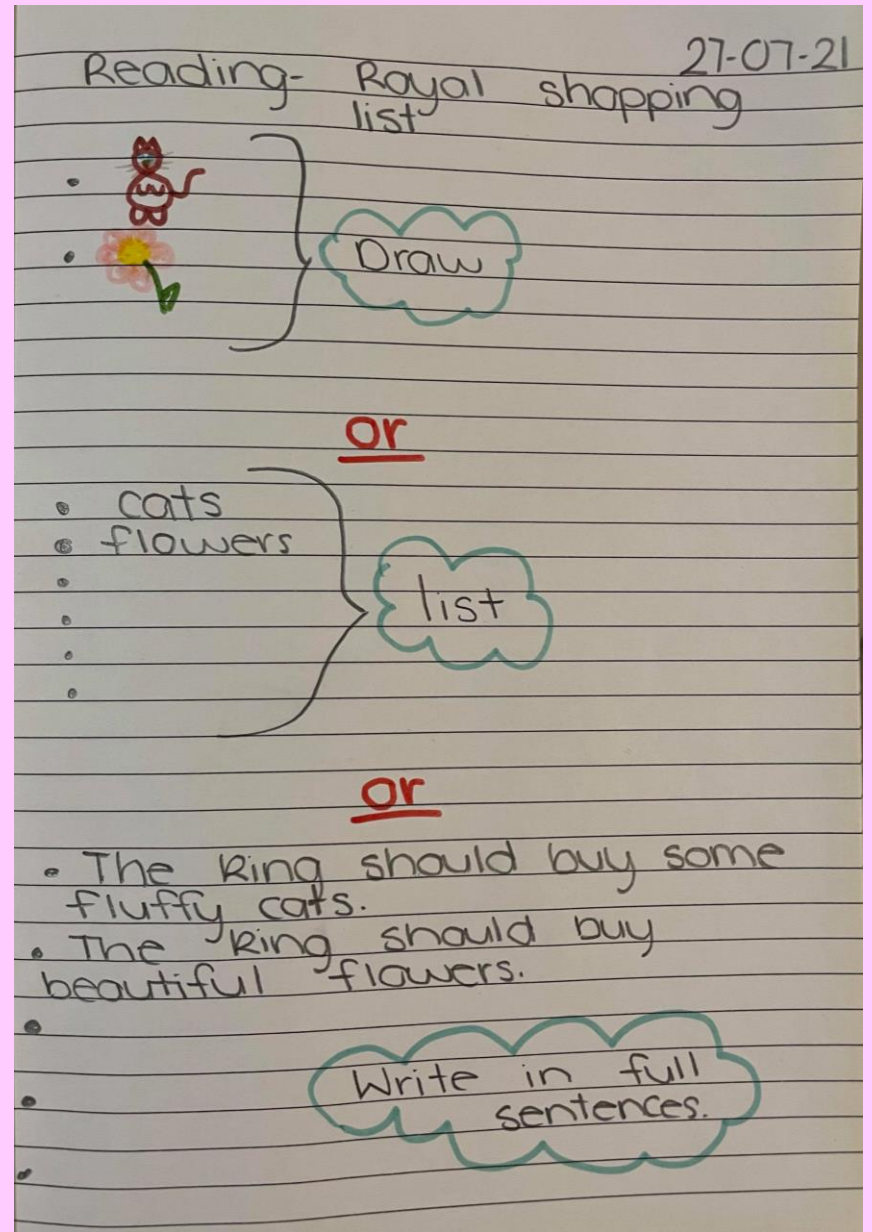 27-07-21
Reading- Royal shopping
list
Draw
or
• cats
• flowers
•
•
•
•
list
or
• The King should buy some
fluffy cats.
• The King should buy
beautiful flowers.
•
Write in full
•
sentences.
•